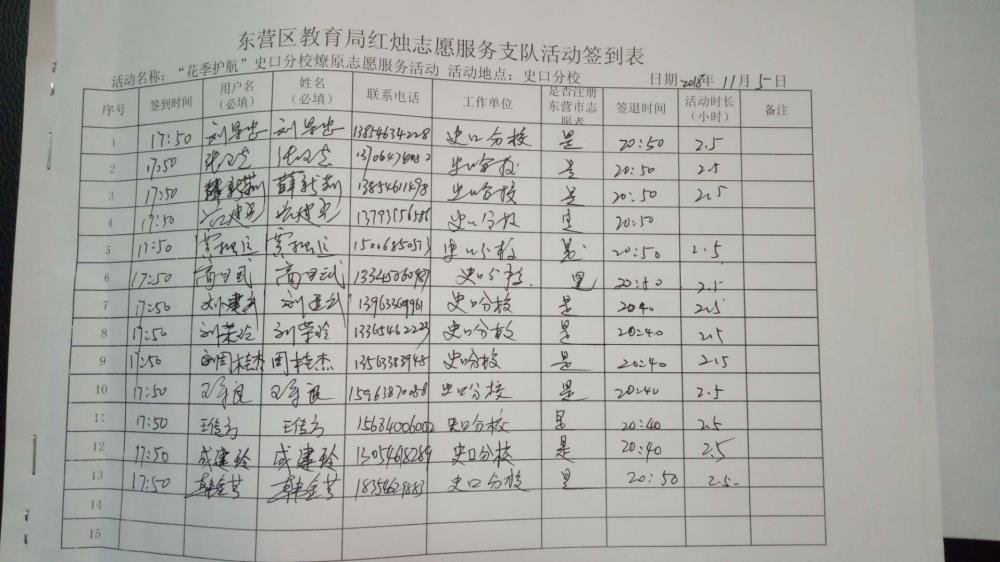 东营区教育局红烛志愿服务支队活动签到表
活动名称：“花季护航”史口分校燎原志愿服务活动 活动地点：史口分校 日期2018年11月5日
序号 签到时间 用户名（必填） 姓名（必填） 联系电话 工作单位 是否注册东营市志愿者 签退时间 活动时长（小时） 备注
1 17:50 刘 刘 13854634228 史口分校 是 20:50 2.5
2 17:50 史口分校 是 20:50 2.5
3 17:50 薛新莉 薛新莉 13854611498 史口分校 是 20:50 2.5
4 17:50 史口分校 是 20:50
5 17:50 史口分校 是 20:50 2.5
6 17:50 史口分校 是 20:50 2.5
7 17:50 刘建武 刘建武 史口分校 是 2040 2.5
8 17:50 刘荣玲 刘荣玲 13365462223 史口分校 是 20:40 2.5
9 17:50 周桂杰 周桂杰 13563383948 史口分校 是 20:40 2.5
10 17:50 史口分校 是 20:40 2.5
11 17:50 15634006002 史口分校 是 20:40 2.5
12 17:50 成建玲 成建玲 13054618289 史口分校 是 20:40 2.5
13 17:50 史口分校 是 20:50 2.5
14
15